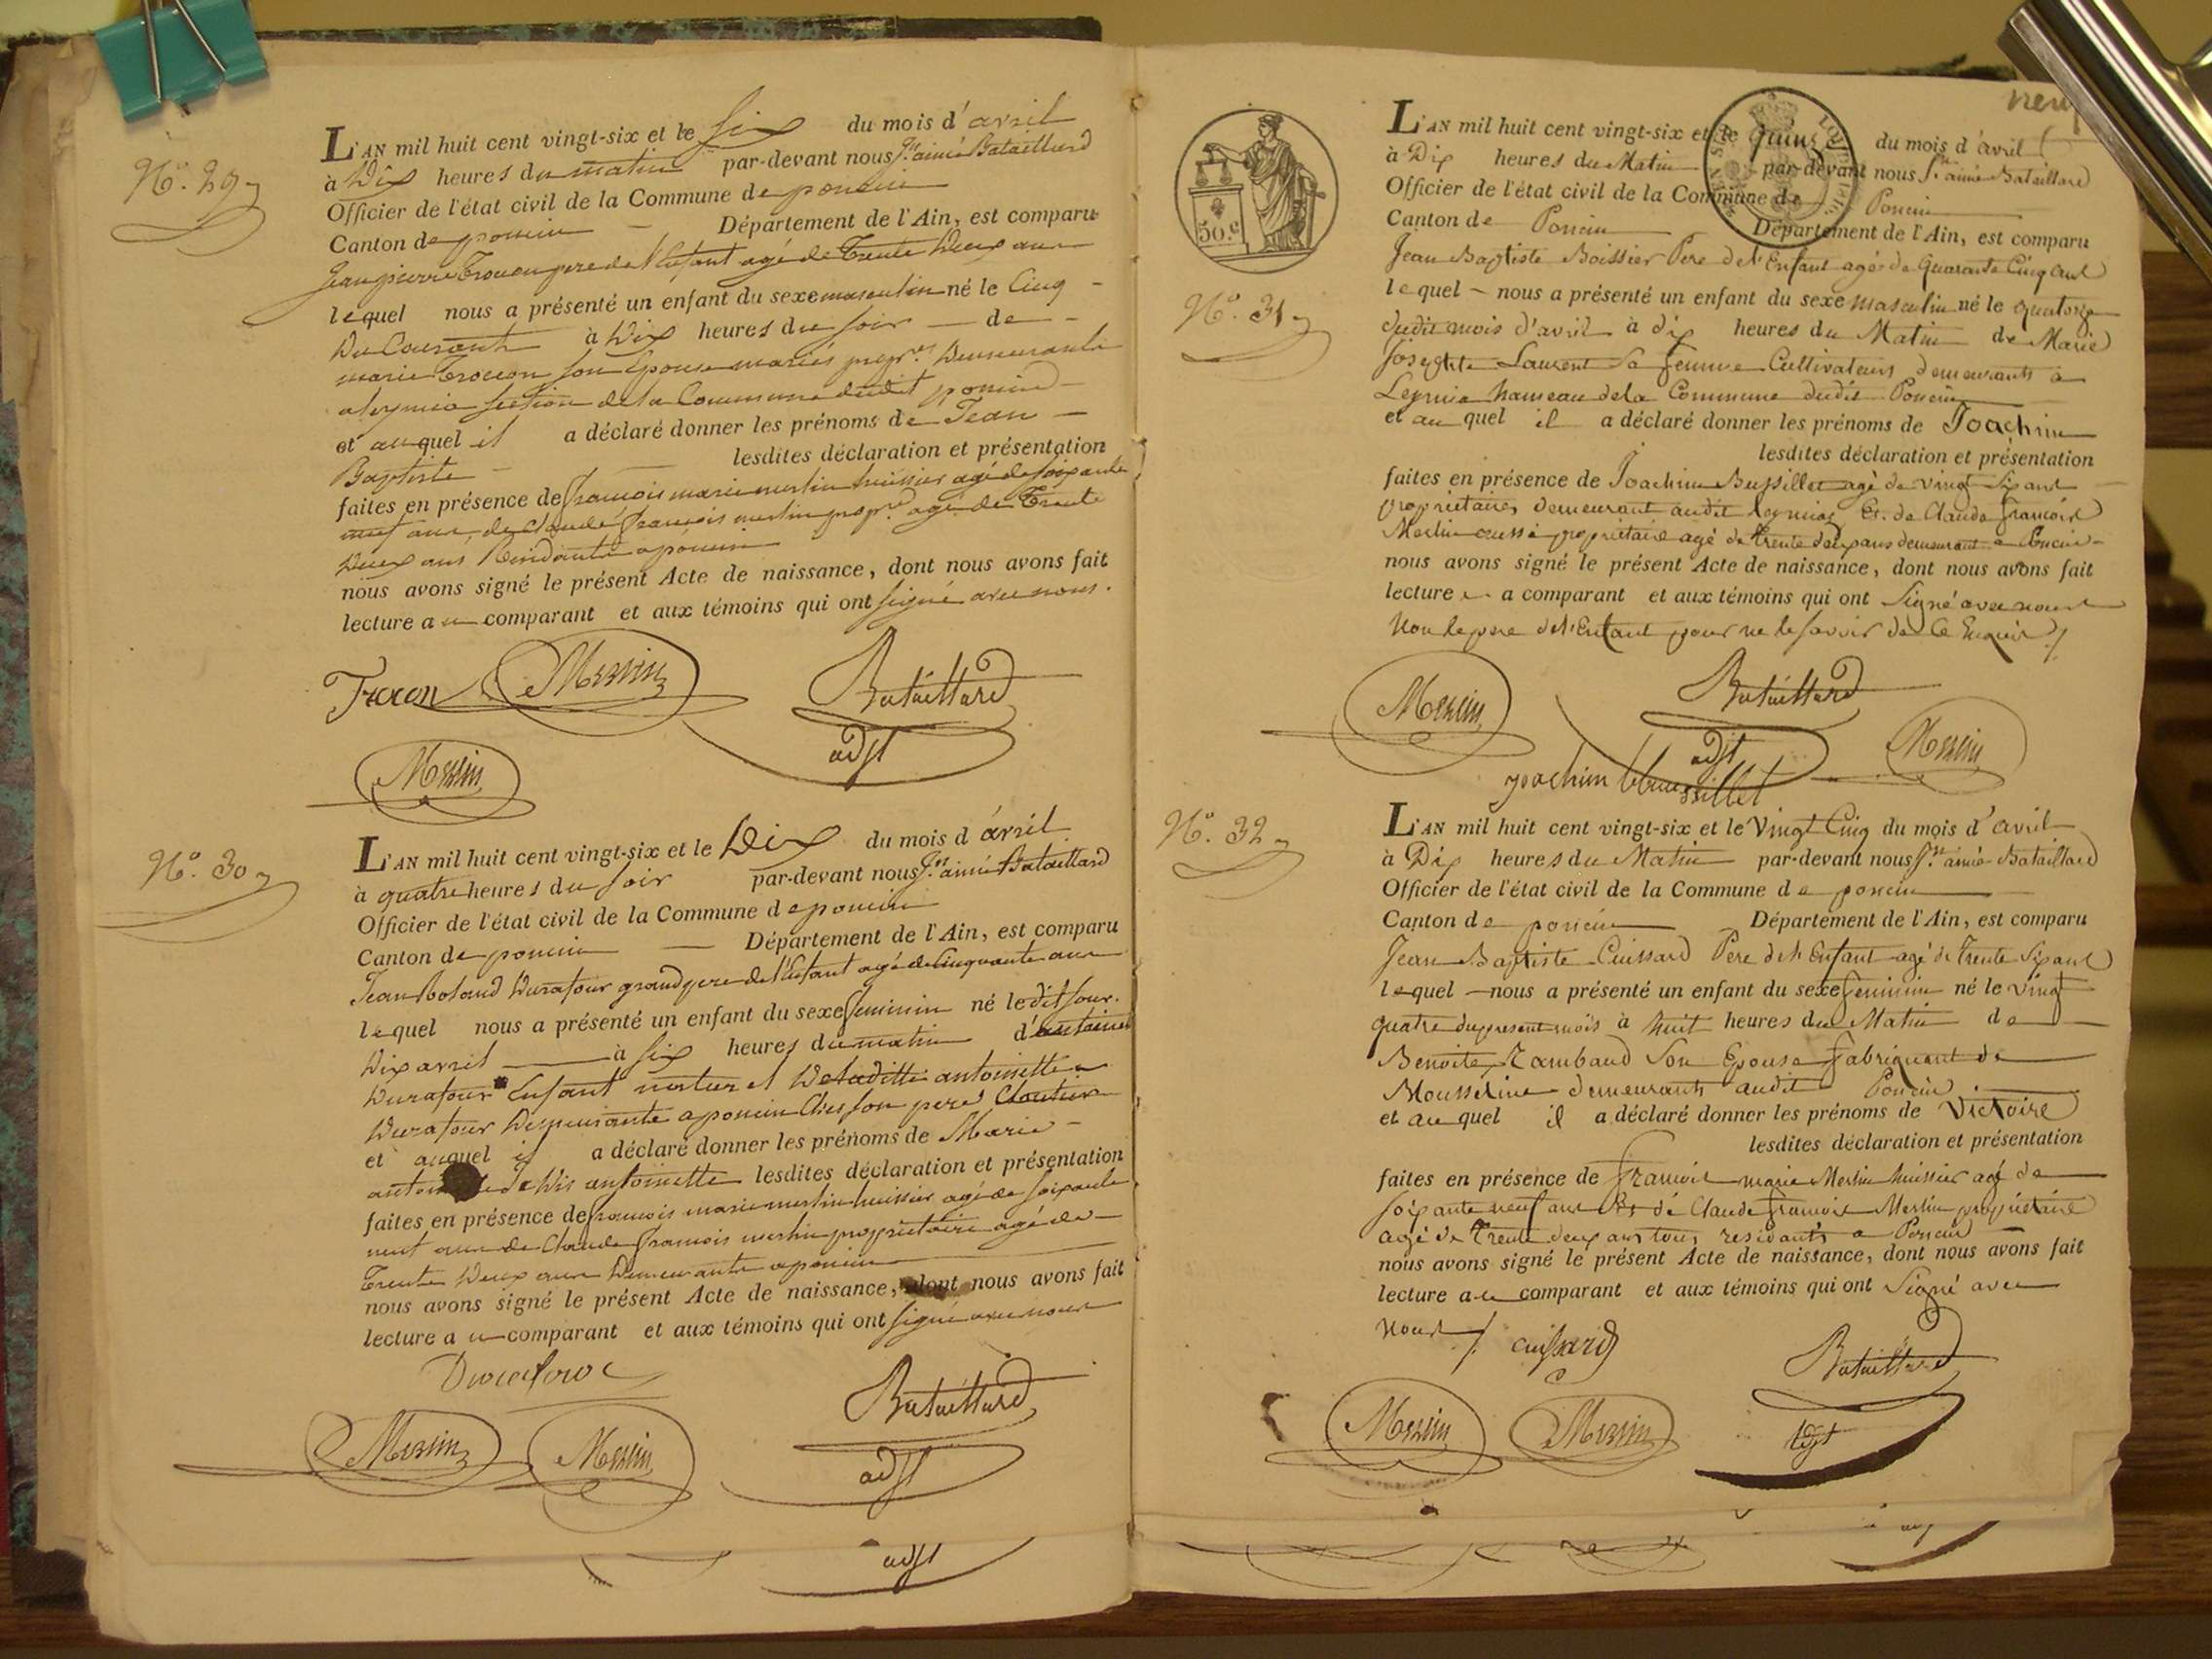 N.° 29
L'AN mil huit cent vingt-six et le six du mois d'avril
à Dix heures du matin par-devant nous Jn aimé Bataillard
Officier de l'état civil de la Commune de poncin
Canton de poncin — Département de l'Ain, est comparu
Jean pierre Trocon pere de l'Enfant agé de Trente Deux ans
lequel nous a présenté un enfant du sexe masculin né le Cinq -
Du Courant à Dix heures du soir — de -
marie Trocon son Epouse mariés propr.es Demeurants
a leymia section de la Commune dudit poncin -
et auquel il a déclaré donner les prénoms de Jean -
Baptiste — lesdites déclaration et présentation
faites en présence de françois marie merlin huissier agé de soixante
neuf ans, de claude françois merlin propr.e agé de Trente
Deux ans Résidants a poncin
nous avons signé le présent Acte de naissance, dont nous avons fait
lecture au comparant et aux témoins qui ont signé avec nous.
Trocon Merlin Bataillard
adjt
Merlin
N.° 30
L'AN mil huit cent vingt-six et le Dix du mois d'avril
à quatre heures du soir par-devant nous Jn aimé Bataillard
Officier de l'état civil de la Commune de poncin
Canton de poncin — Département de l'Ain, est comparu
Jean Roland Durafour grand pere de l'Enfant agé de Cinquante ans
lequel nous a présenté un enfant du sexe feminin né ledit jour.
Dix avril — à six heures du matin d'antoinette
Durafour Enfant naturel De laditte antoinette
Durafour Demeurante a poncin Ches son pere Cloutier
et auquel il a déclaré donner les prénoms de Marie -
antoinette lesdites déclaration et présentation
faites en présence de françois marie merlin huissier agé de soixante
neuf ans de Claude françois merlin propriétaire agé de -
Trente Deux ans Demeurants a poncin
nous avons signé le présent Acte de naissance, dont nous avons fait
lecture au comparant et aux témoins qui ont signé avec nous
Bataillard
Merlin Merlin adjt
adjt
50.c
N.° 31
L'AN mil huit cent vingt-six et le quinze du mois d'avril
à Dix heures du Matin par-devant nous Jn aimé Bataillard
Officier de l'état civil de la Commune de Poncin
Canton de Poncin Département de l'Ain, est comparu
Jean Baptiste Boissier Pere de l'Enfant agé de Quarante Cinq ans
lequel — nous a présenté un enfant du sexe masculin né le quatorze
dudit mois d'avril à dix heures du Matin de Marie
Josephte Laurent sa femme Cultivateurs demeurants à
Leymia hameau de la Commune dudit Poncin
et auquel il a déclaré donner les prénoms de Joachim
lesdites déclaration et présentation
faites en présence de Joachim Bussillet agé de vingt six ans
propriétaire demeurant audit leymia Et de Claude françois
Merlin aussi propriétaire agé de trente deux ans demeurant a Poncin -
nous avons signé le présent Acte de naissance, dont nous avons fait
lecture au comparant et aux témoins qui ont signé avec nous
Non le pere de l'Enfant pour ne le savoir de Ce Enquis ./.
Merlin Bataillard
adjt Merlin
joachim bbussillet
N.° 32
L'AN mil huit cent vingt-six et le Vingt Cinq du mois d'avril
à Dix heures du Matin par-devant nous Jn aimé Bataillard
Officier de l'état civil de la Commune de poncin
Canton de poncin Département de l'Ain, est comparu
Jean Baptiste Cuissard Pere de l'Enfant agé de Trente Six ans
lequel — nous a présenté un enfant du sexe feminin né le vingt
quatre du present mois à huit heures du Matin de
Benoite Rambaud Son Epouse fabriquant de
Mousseline demeurants audit Poncin
et auquel il a déclaré donner les prénoms de Victoire
lesdites déclaration et présentation
faites en présence de françois marie Merlin huissier agé de
soixante neuf ans Et de Claude françois Merlin propriétaire
agé de trente deux ans tous residants a Poncin
nous avons signé le présent Acte de naissance, dont nous avons fait
lecture au comparant et aux témoins qui ont Signé avec
nous ./. cuissard Bataillard
Merlin Merlin adjt